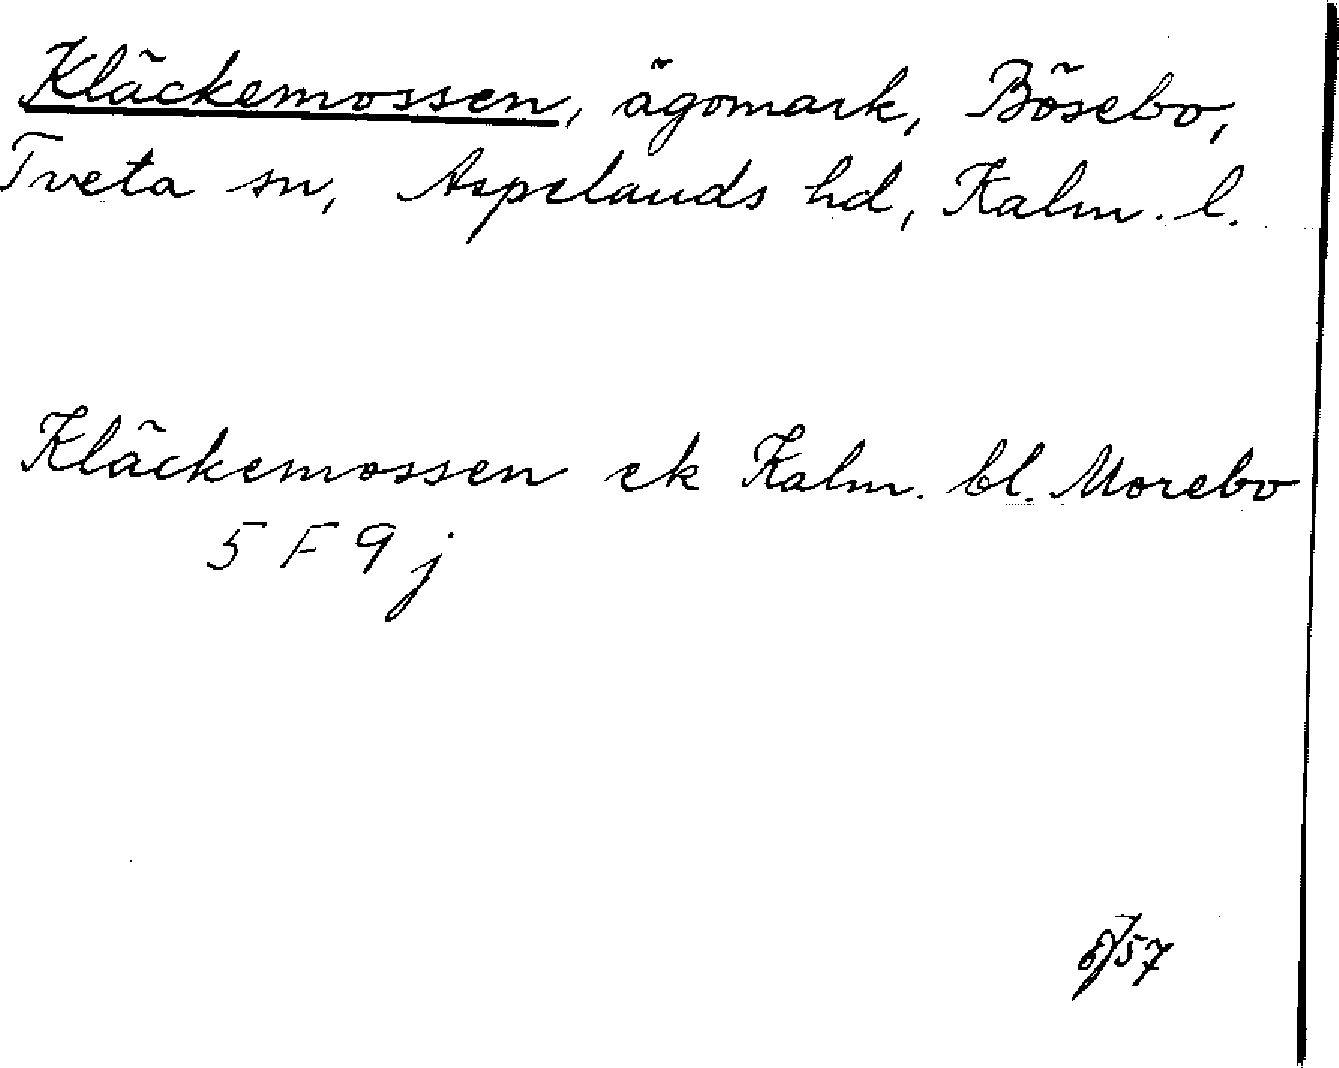 Kläckemossen, ägomark, Bösebo,
Tveta sn, Aspelands hd, Kalm. l.
Kläckemossen ek Kalm. bl. Morebo
5 F 9 j